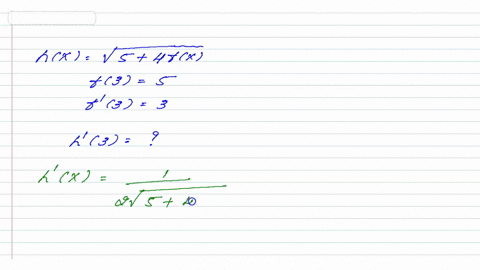 h(x) = √5 + 4f(x)
f(3) = 5
f'(3) = 3
h'(3) = ?
h'(x) = 1 / 2√5 + 4